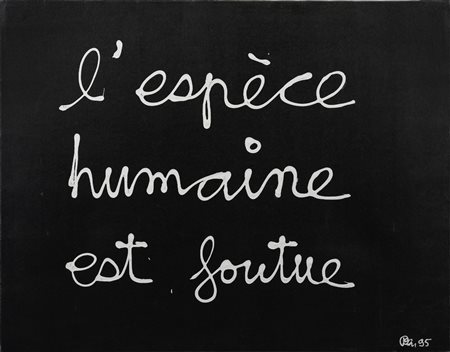 l'espèce
humaine
est foutue
Ben 95